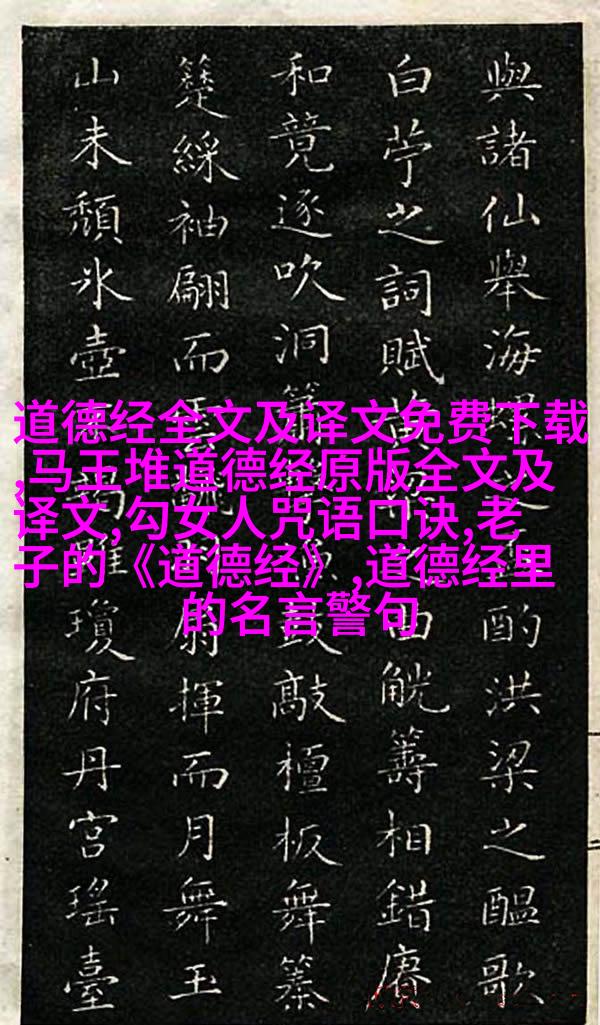 與諸仙舉海螺
酌洪梁之醞歌
白苧之詞賦
曲觥籌相錯賡
和竟逐吹洞簫
鼓敲檀板舞纂
簇綵袖翩而
揮而月舞玉
山未頹氷壺
瓊府丹宮瑤臺
道德经全文及译文免费下载
,马王堆道德经原版全文及
译文,勾女人咒语口诀,老
子的《道德经》,道德经里
的名言警句